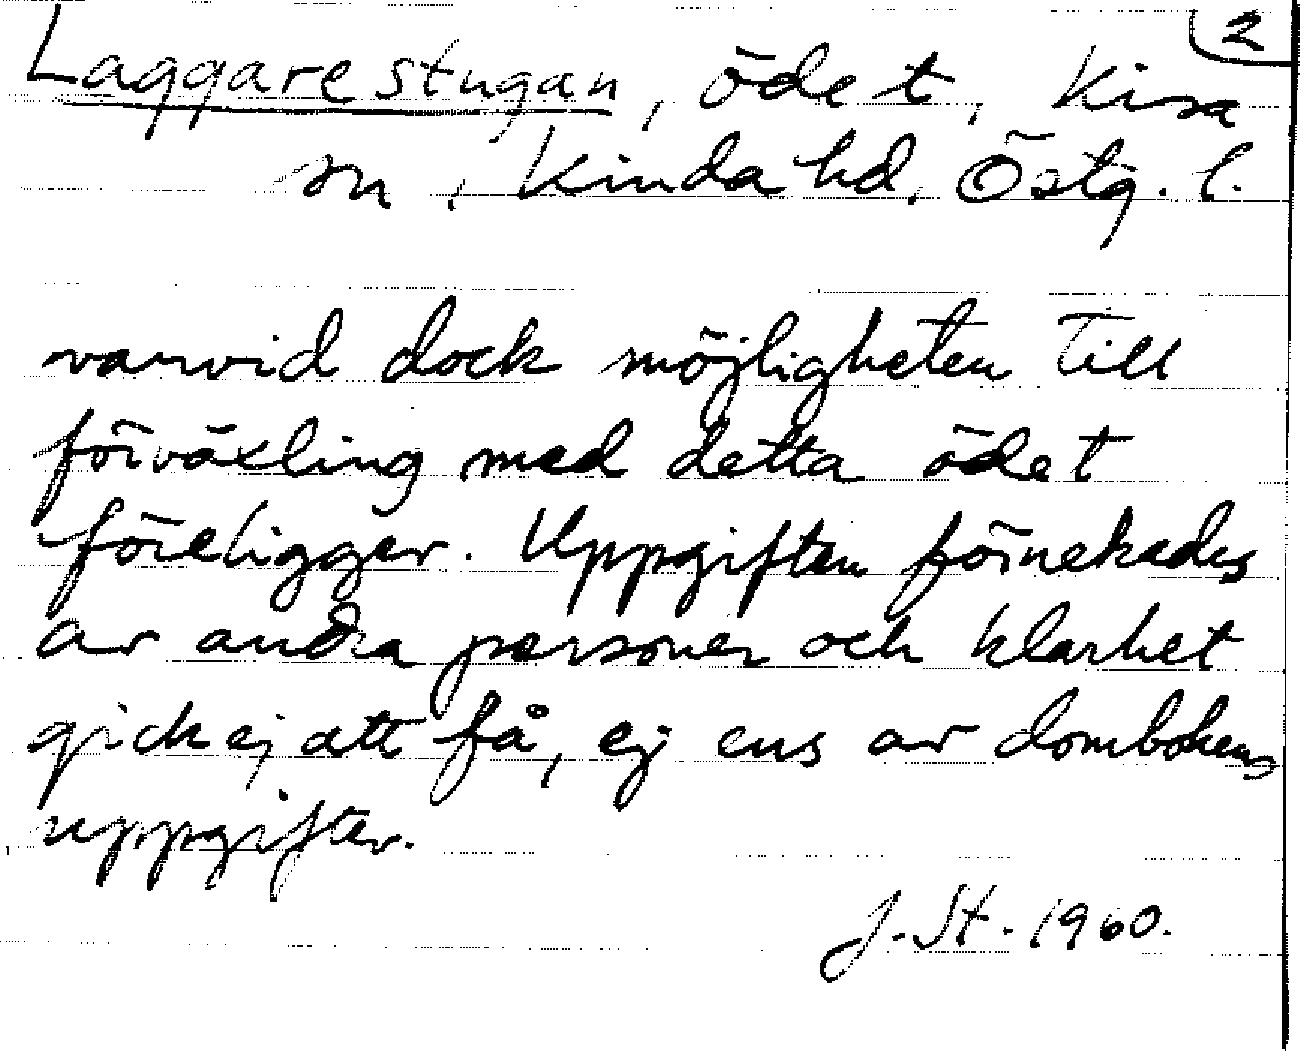 2
Laggarestugan, ödet, Kisa
sn, Kinda hd, Östg. l.
varvid dock möjligheten till
förväxling med detta ödet
föreligger. Uppgiften förnekades
av andra personer och klarhet
gick ej att få, ej ens av dombokens
uppgifter.
J. St. 1960.